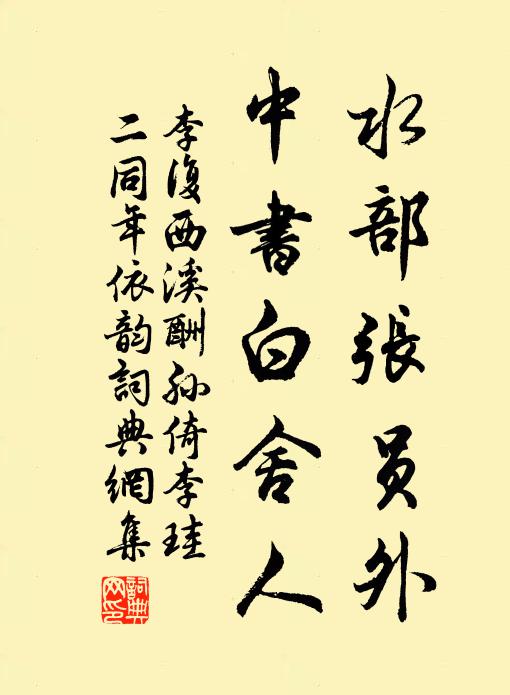 水部張員外
中書白舍人
李復西溪酬孙倚李珪
二同年依韵詞典網集
詞典网印